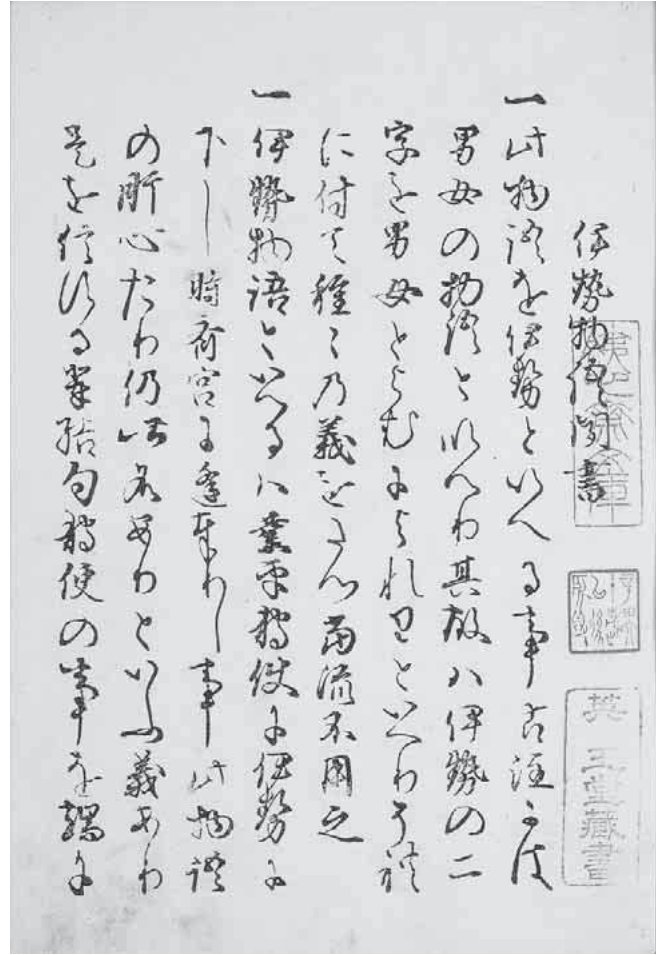 伊勢物語聞書
一此物語を伊勢といへる事古注には
男女の物語といへり其故は伊勢の二
字を男女とよむによれりといへり
に付て種々の義をたつ当流不用之
一伊勢物語といへるハ業平狩使に伊勢に
下し時斎宮に逢奉りし事此物語
の肝心たり仍此名ありといふ義あり
是を信ずる輩結句狩使の事を端に
英王堂蔵書